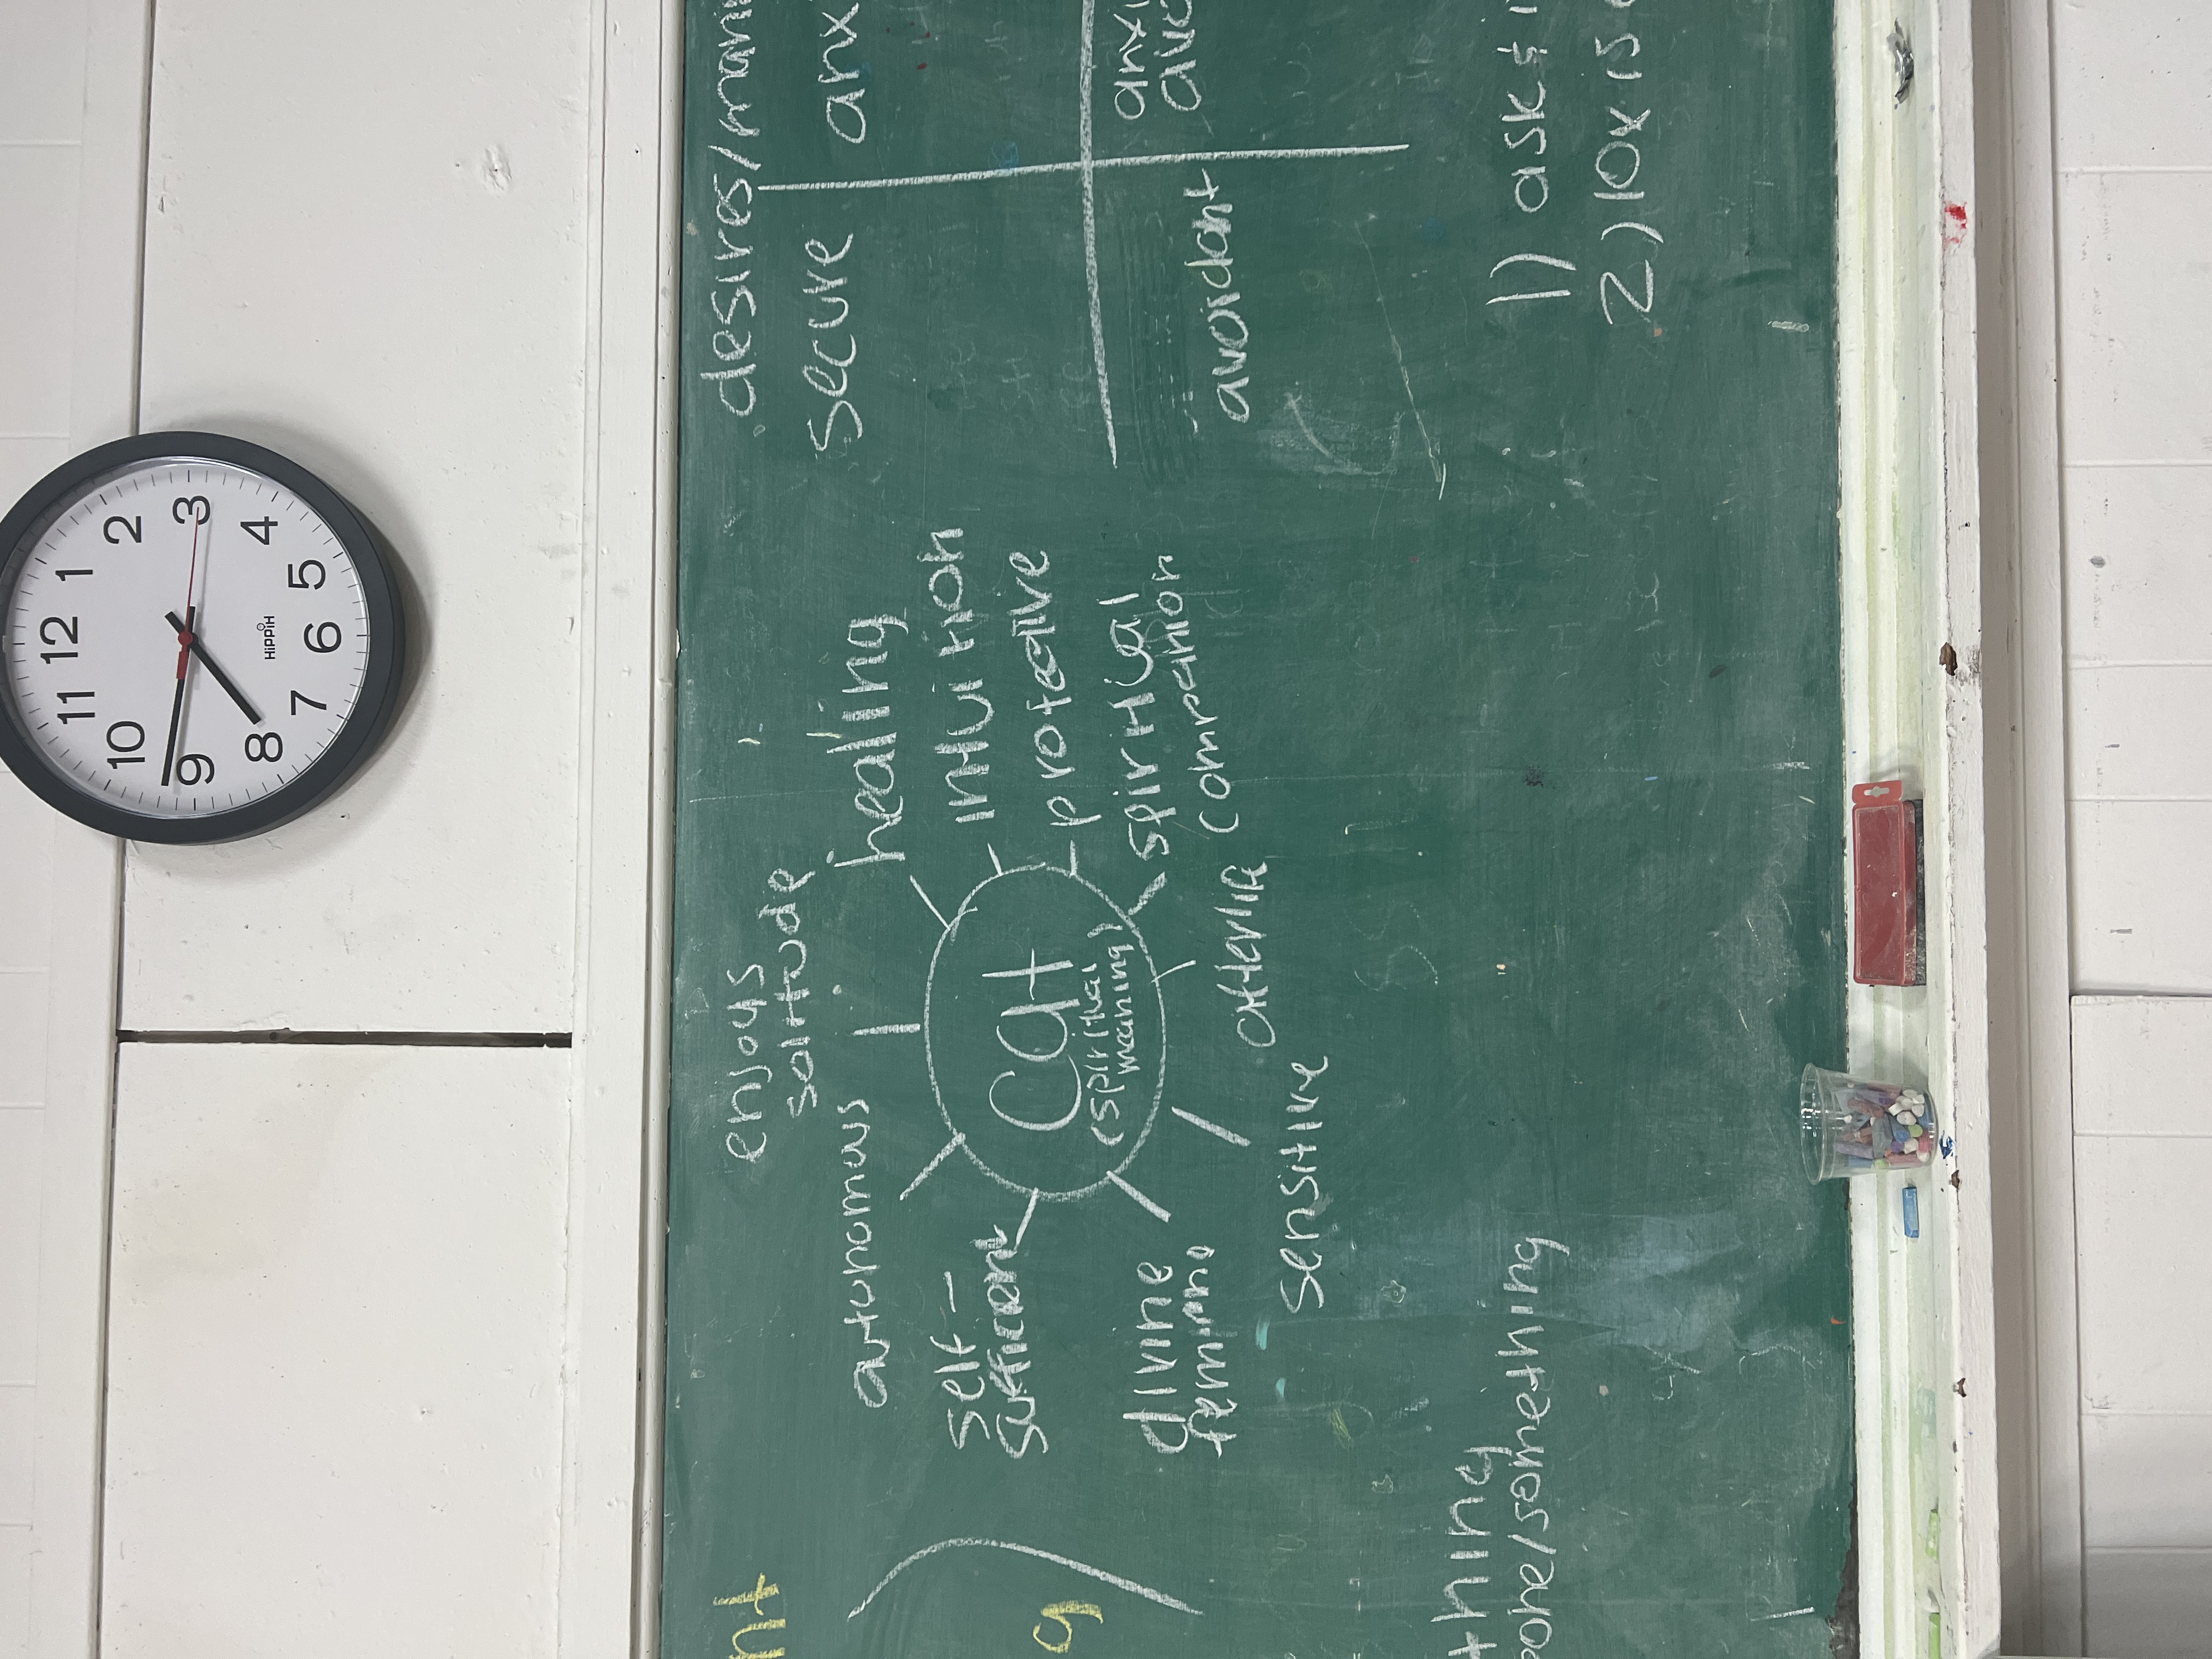 12
1
2
3
4
5
6
7
8
9
10
11
HiPPiH
nt
g
thing
one/something
enjoys
solitude
autonomous
healing
self-
sufficient
intuition
protective
Cat
(spiritual
meaning)
spiritual
companion
divine
feminine
sensitive
desires/mani
secure
anx
avoidant
anx
avo
1) ask &
2) 10x is